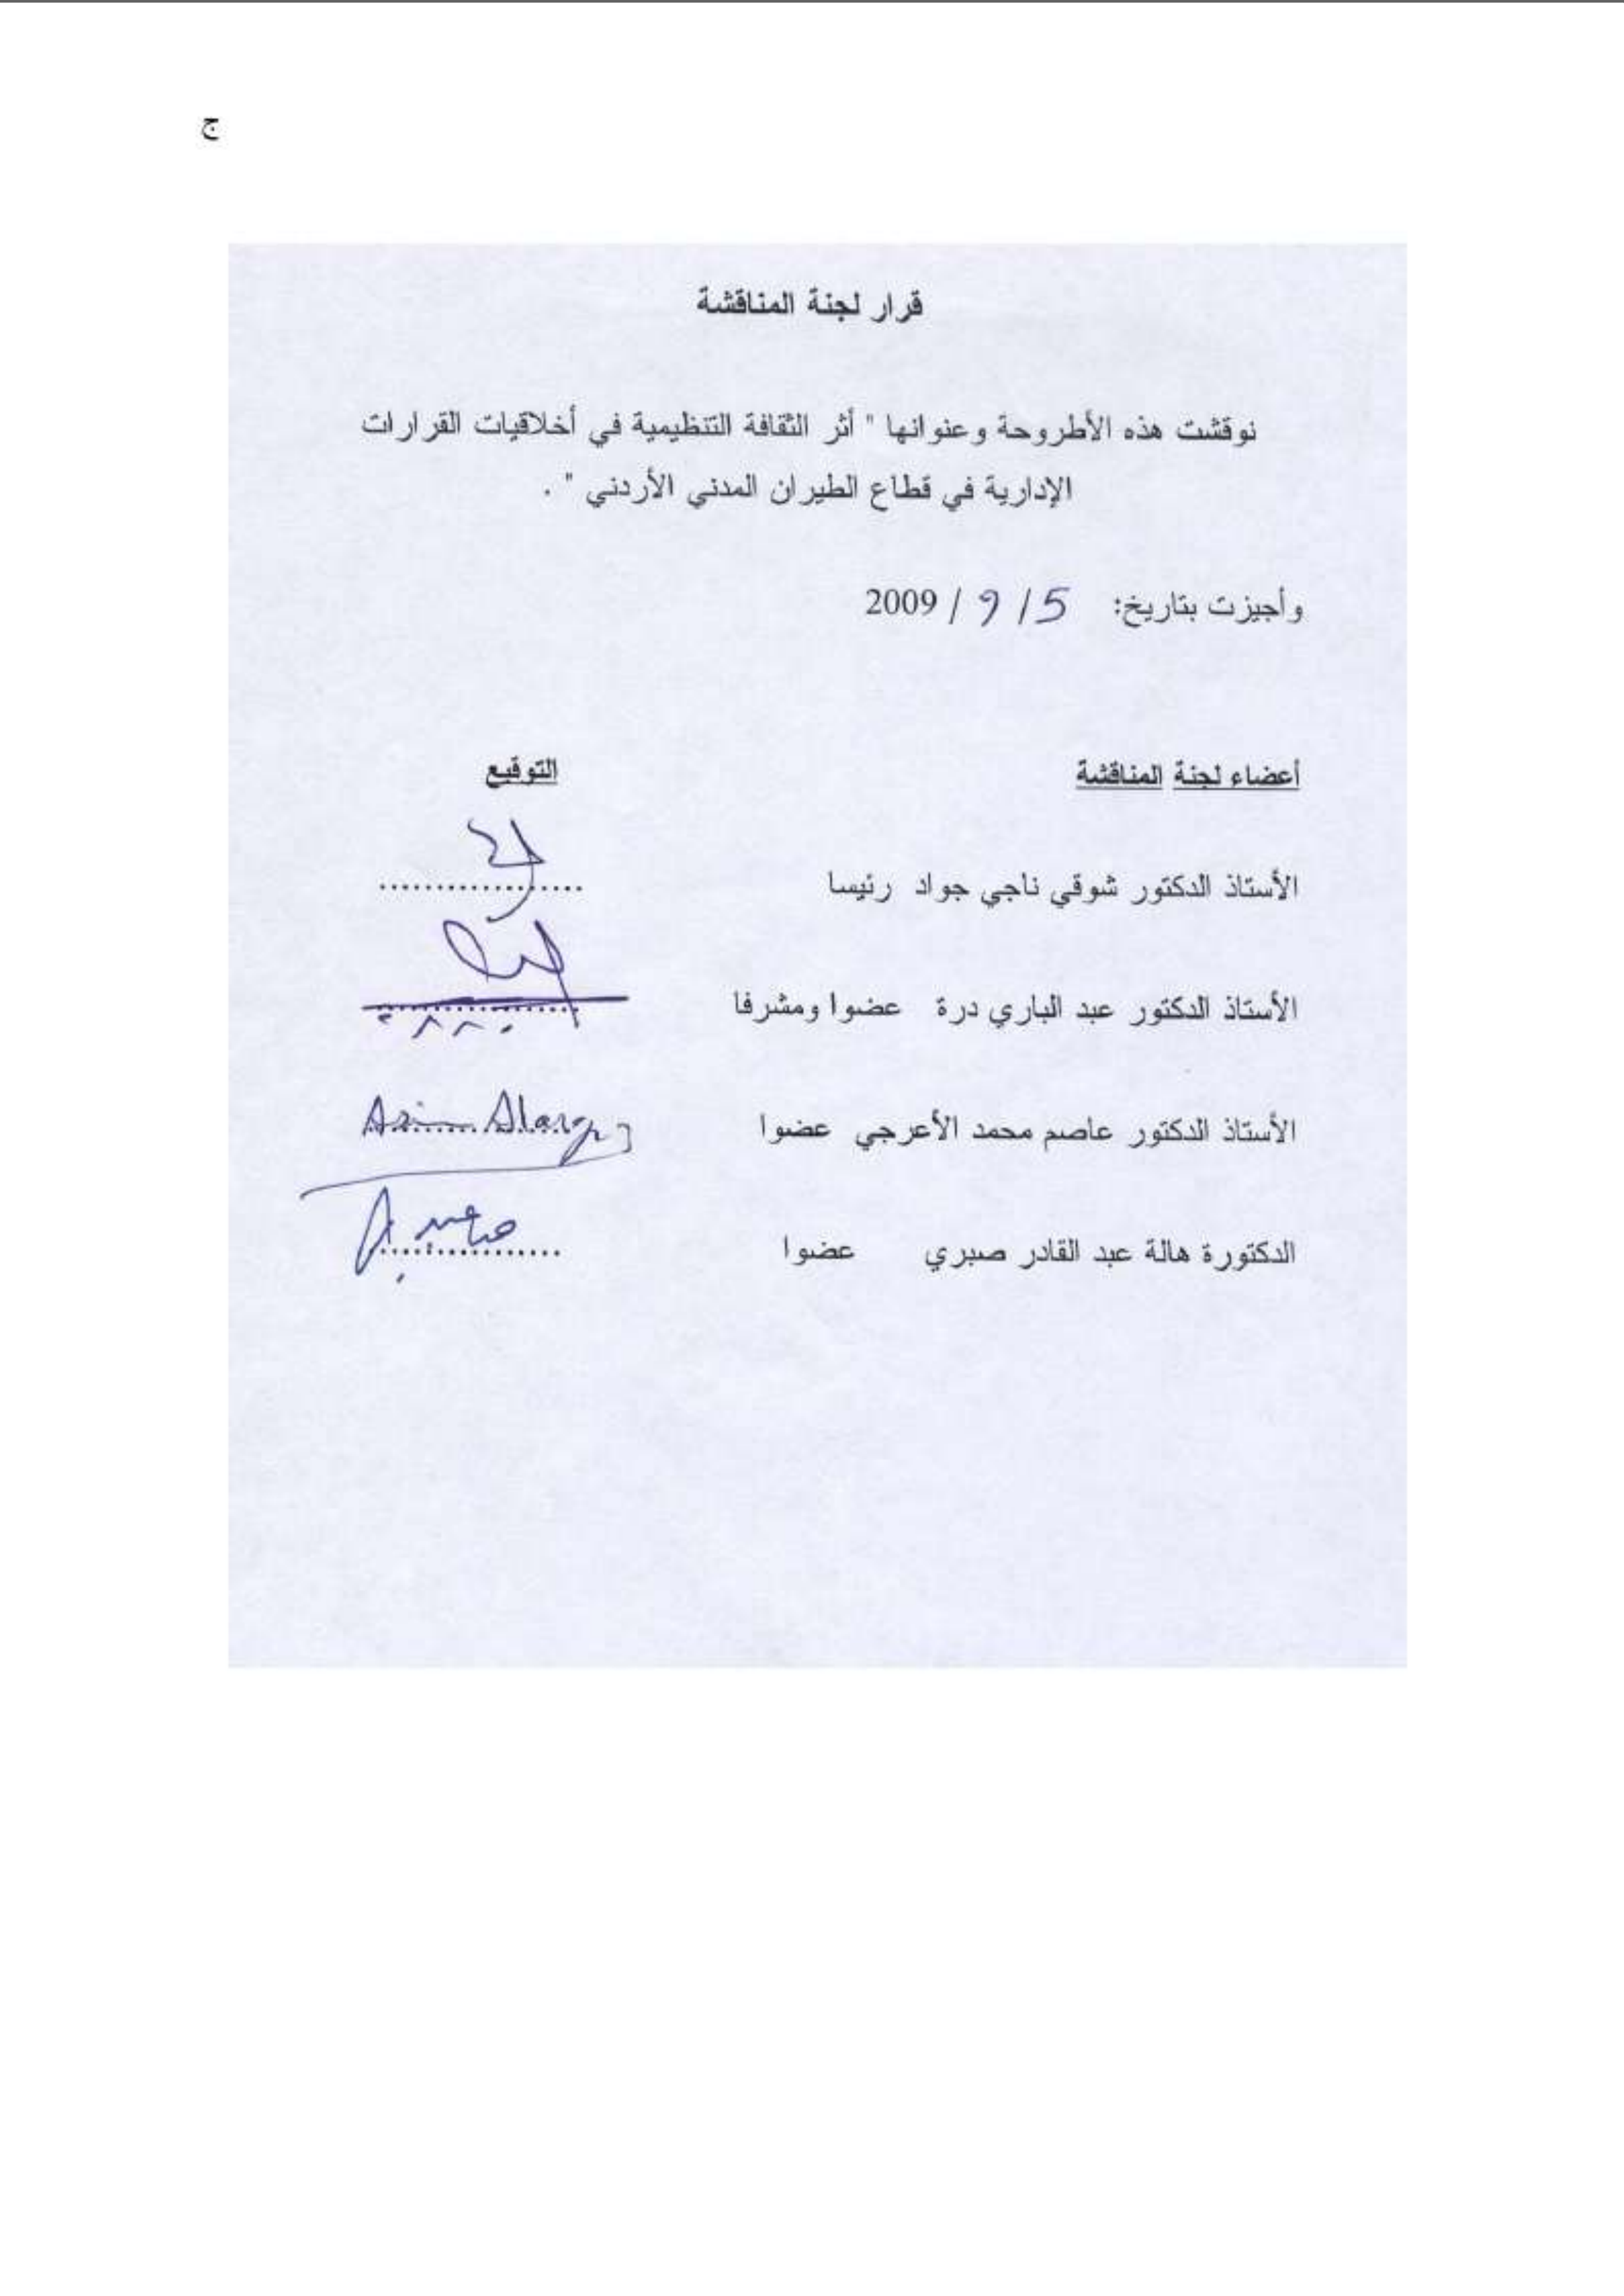 ج
قرار لجنة المناقشة
نوقشت هذه الأطروحة وعنوانها " أثر الثقافة التنظيمية في أخلاقيات القرارات
الإدارية في قطاع الطيران المدني الأردني " .
وأجيزت بتاريخ: 5/ 9 / 2009
أعضاء لجنة المناقشة التوقيع
الأستاذ الدكتور شوقي ناجي جواد رئيسا ....................
الأستاذ الدكتور عبد الباري درة عضوا ومشرفا
الأستاذ الدكتور عاصم محمد الأعرجي عضوا
الدكتورة هالة عبد القادر صبري عضوا